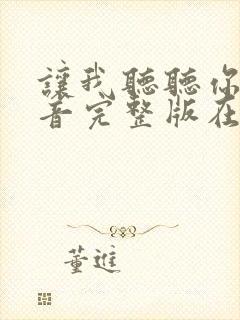 讓我聽聽你
音完整版在
董進